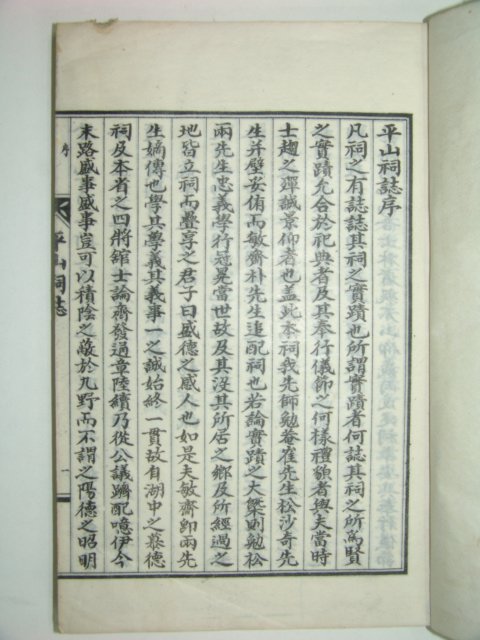 平山祠誌序
凡祠之有誌誌其祠之實蹟也所謂實蹟者何誌其祠之所爲賢
之實蹟允合於祀典者及其奉行儀節之何樣禮貌者與夫當時
士趨之殫誠景仰者也盖此本祠我先師勉菴崔先生松沙奇先
生并壁妥侑而敏齋朴先生追配祠也若論實蹟之大槩則勉松
兩先生忠義學行冠冕當世故及其沒其所居之鄕及所經過之
地皆立祠而疊享之君子曰盛德之感人也如是夫敏齋卽兩先
生嫡傳也學其學義其義事一之誠始終一貫故自湖中之慕德
祠及本省之四將舘士論齊發過章陸續乃從公議躋配噫伊今
末路盛事盛事豈可以積陰之蔽於九野而不謂之陽德之昭明
序
平山祠誌
一